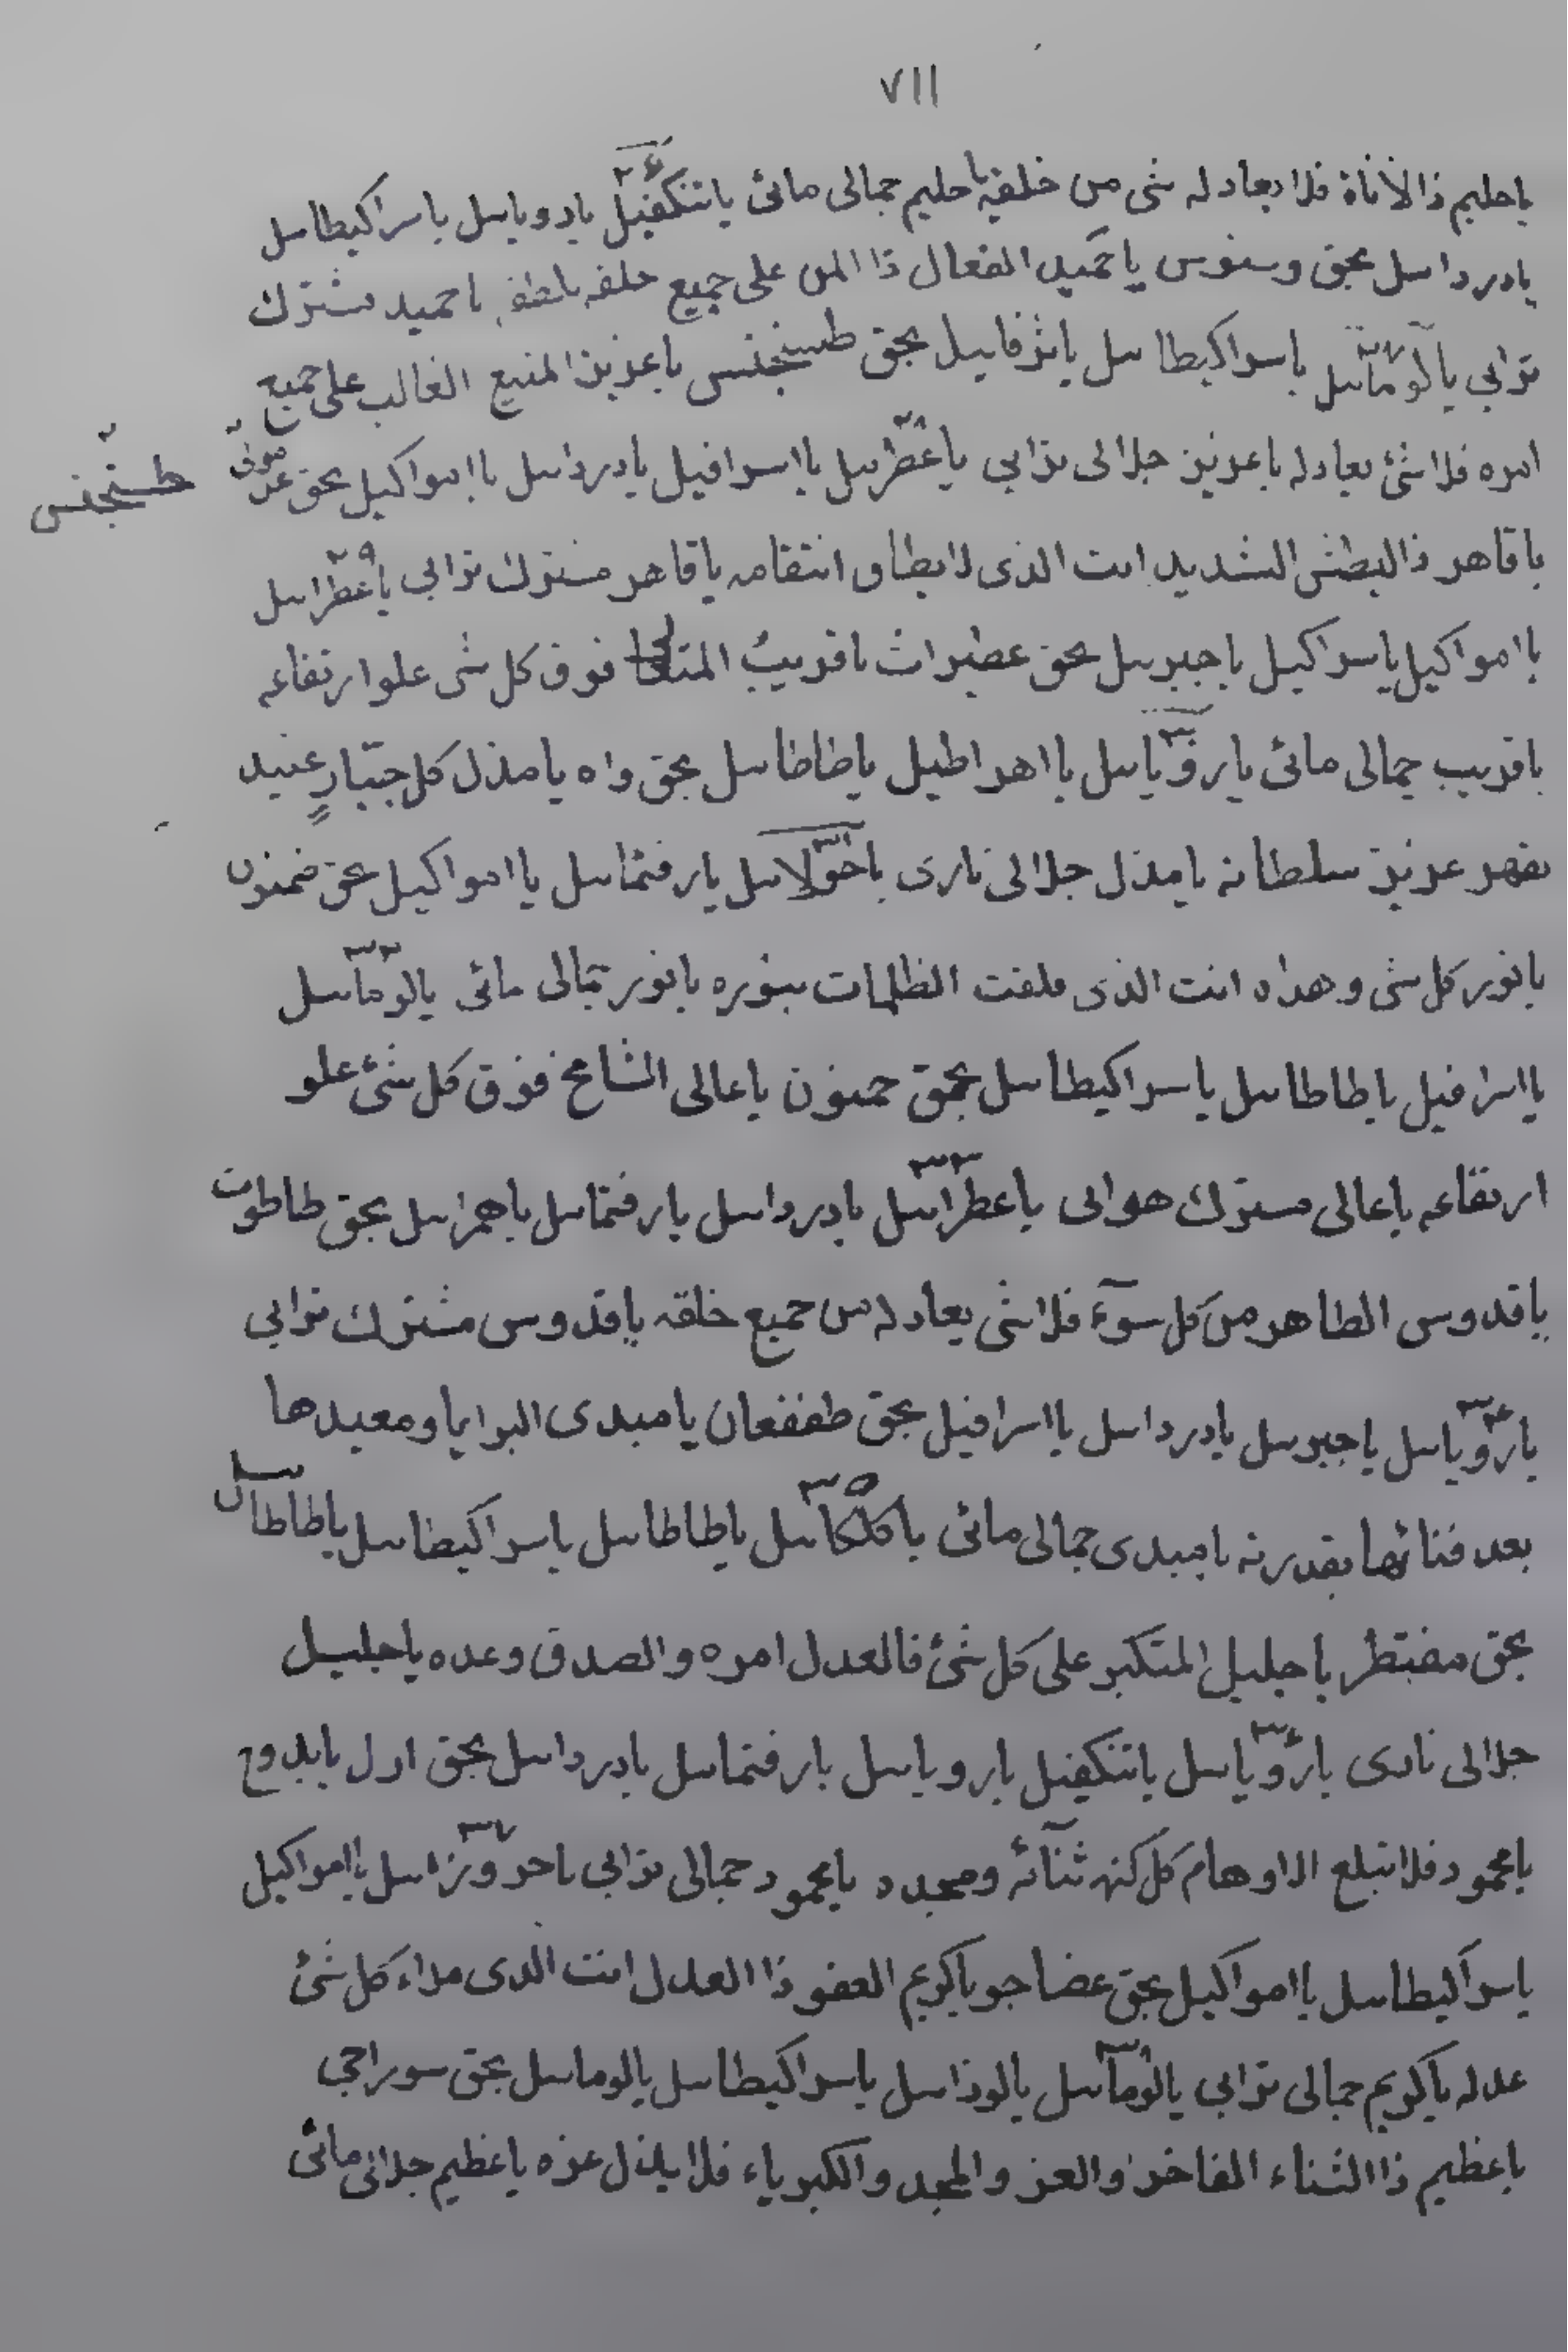 ٧١١
ياحليم ذا الأناة فلا يعادله شى من خلقه ياحليم جمالى مائى ياتنكفيل يارويايىل ياسراكيطايىل
يادردايىل بحق وسنوس ياحميد الفعال ذا المن على جميع خلقه بلطفه ياحميد مشترك
ترابي يالومايىل ياسراكيطايىل يا بحق ياعزيز المنيع الغالب على جميع
امره فلا شئ يعادله ياعزيز جلالى ترابي ياعطرايىل يااسرافيل يادردايىل ياامواكيل بحق
طسنجفس
ياقاهر ذا البطش الشديد انت الذى لايطاق انتقامه ياقاهر مشترك ترابي ياعطرايىل
ياامواكيل ياسراكيل ياجبريىل بحق عصيراث ياقريب المتعالى فوق كل شى علو ارتفاعه
ياقريب جمالى مائى يارويايىل يااهراطيل ياطاطايىل بحق واه يامذل كل جبّارٍ عنيد
بقهر عزيز سلطانه يامذل جلالى نارى ياحولايىل يارفتمايىل ياامواكيل بحق ضمنون
يانور كل شى وهداه انت الذى فلقت الظلمات بنوره يانور جمالى مائى يالومايىل
يااسرافيل ياطاطايىل ياسراكيطايىل بحق حمنون ياعالى الشامخ فوق كل شئ علو
ارتفاعه ياعالى مشترك هوائى ياعطرايىل يادردايىل يارفتمايىل ياهمرايىل بحق طاطوت
ياقدوس الطاهر من كل سوٓء فلا شى يعادله من جميع خلقه ياقدوس مشترك ترابي
يارويايىل ياجبريىل يادردايىل يااسرافيل بحق طففعان يامبدى البرايا ومعيدها
بعد فنائها بقدرته يامبدى جمالى مائى ياكلكايىل ياطاطايىل ياسراكيطايىل ياطاطايىل
بحق مفتطر ياجليل المتكبر على كل شئ فالعدل امره والصدق وعده ياجليل
جلالى نارى يارويايىل ياتنكفيل يارويايىل يارفتمايىل يادردايىل بحق ادل يابدوح
يامحمود فلا تبلغ الاوهام كل كنه ثنآئه ومجده يامحمود جمالى ترابي ياحروزايىل ياامواكيل
ياسراكيطايىل ياامواكيل بحق عضاجو ياكريم العفو ذا العدل انت الذى ملاء كل شئ
عدله ياكريم جمالى ترابي يالومايىل يالوذايىل ياسراكيطايىل يالومايىل بحق سوراحي
ياعظيم ذا الثناء الفاخر والعز والمجد والكبرياء فلا يذل عزه ياعظيم جلالى مائى